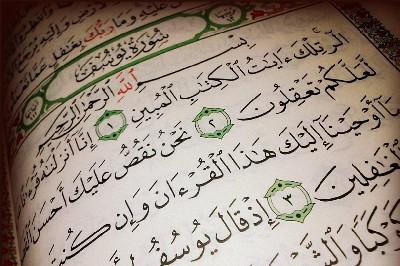 عَلَيْهِ وَمَا رَبُّكَ بِغَٰفِلٍ عَمَّا
سُورَةُ يُوسُفَ
بِسْمِ ٱللَّهِ ٱلرَّحْمَٰنِ ٱلرَّحِيمِ
الٓر تِلْكَ ءَايَٰتُ ٱلْكِتَٰبِ ٱلْمُبِينِ ١ إِنَّآ أَنزَلْنَٰهُ
لَّعَلَّكُمْ تَعْقِلُونَ ٢ نَحْنُ نَقُصُّ عَلَيْكَ أَحْسَنَ
مَآ أَوْحَيْنَآ إِلَيْكَ هَٰذَا ٱلْقُرْءَانَ وَإِن كُنتَ
ٱلْغَٰفِلِينَ ٣ إِذْ قَالَ يُوسُفُ